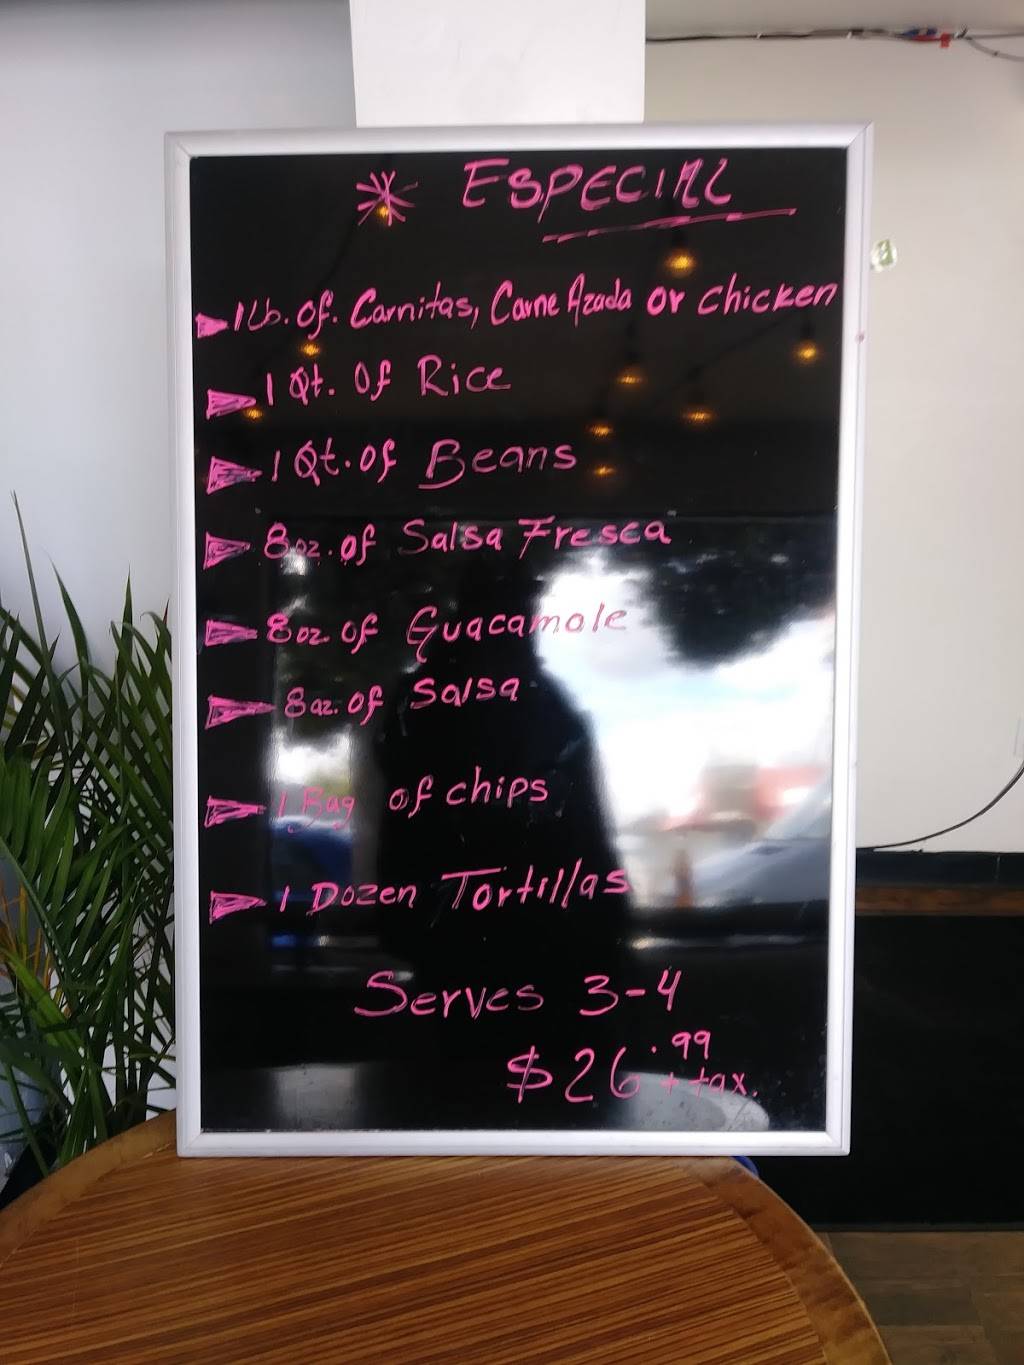 * ESPECIAL
1 Lb. of. Carnitas, Carne Azada or chicken
1 Qt. Of Rice
1 Qt. of Beans
8oz. of Salsa Fresca
8oz. of Guacamole
8oz. of Salsa
1 Bag of chips
1 Dozen Tortillas
Serves 3-4
$26.99
+ tax.